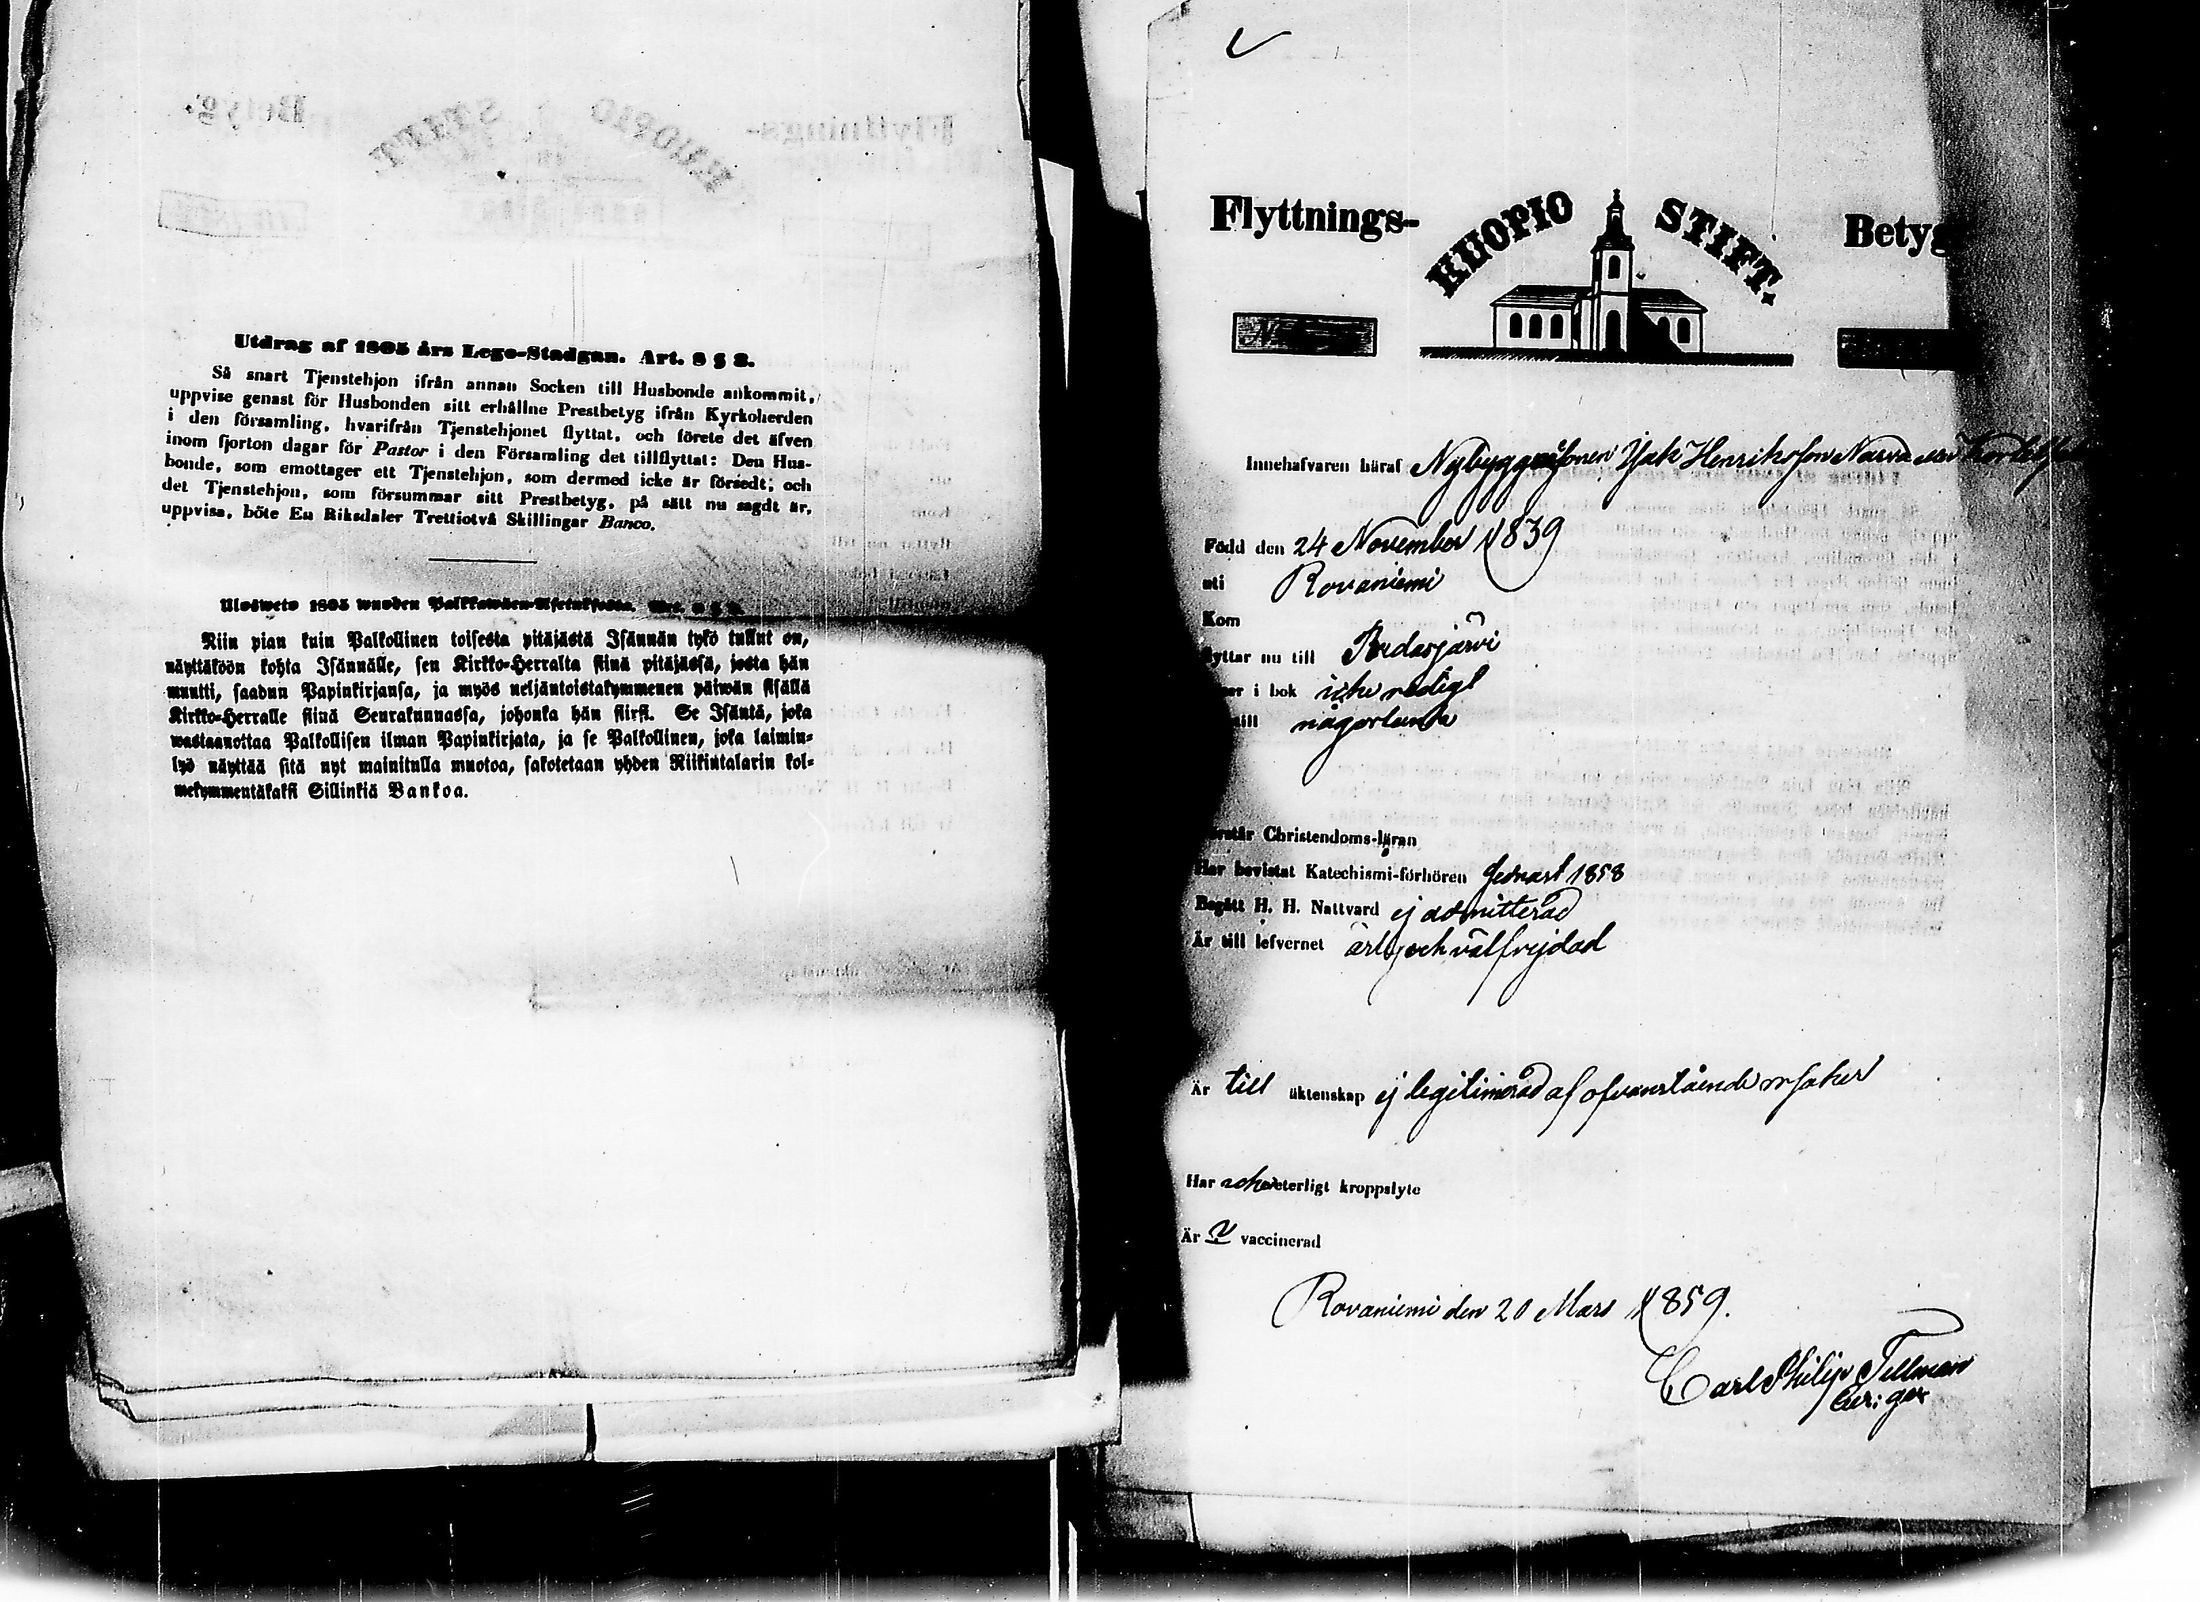 Utdrag af 1805 års Lego-Stadgan. Art. 8 § 2.
Så snart Tjenstehjon ifrån annan Socken till Husbonde ankommit,
uppvise genast för Husbonden sitt erhållne Prestbetyg ifrån Kyrkoherden
i den församling, hvarifrån Tjenstehjonet flyttat, och förete det äfven
inom fjorton dagar för Pastor i den Församling det tillflyttat: Den Hus-
bonde, som emottager ett Tjenstehjon, som dermed icke är försedt; och
det Tjenstehjon, som försummar sitt Prestbetyg, på sätt nu sagdt är,
uppvisa, böte En Riksdaler Trettiotvå Skillingar Banco.
Ulosweto 1805 wuoden Palkkawäen-Asetuksesta.
Niin pian kuin Palkollinen toisesta pitäjästä Isännän tykö tullut on,
näyttäköön kohta Isännälle, sen Kirkko-Herralta siinä pitäjässä, josta hän
muutti, saadun Papinkirjansa, ja myös neljäntoistakymmenen päiwän sisällä
Kirkko-Herralle siinä Seurakunnassa, johonka hän siirsi. Se Isäntä, joka
wastaanottaa Palkollisen ilman Papinkirjata, ja se Palkollinen, joka laimin-
lyö näyttää sitä nyt mainitulla muotoa, sakotetaan yhden Riikintalarin kol-
mekymmentäkaksi Sillinkiä Bankoa.
Flyttnings- KUOPIO STIFT. Betyg
N
Innehafvaren häraf Nybyggaresonen Isak Henriksson Narva
Född den 24 November 1839
uti Rovaniemi
Kom
flyttar nu till Pudasjärvi
i bok icke redigt
till någorlunda
Christendoms-läran
Har bevistat Katechismi-förhören sednast 1858
Begått H. H. Nattvard ej admitterad
Är till lefvernet ärlig och välfrejdad
Är till äktenskap ej legitimerad af ofvanstående orsaker
Har icke veterligt kroppslyte
Är vaccinerad
Rovaniemi den 20 Mars 1859.
Carl Philip Tellman